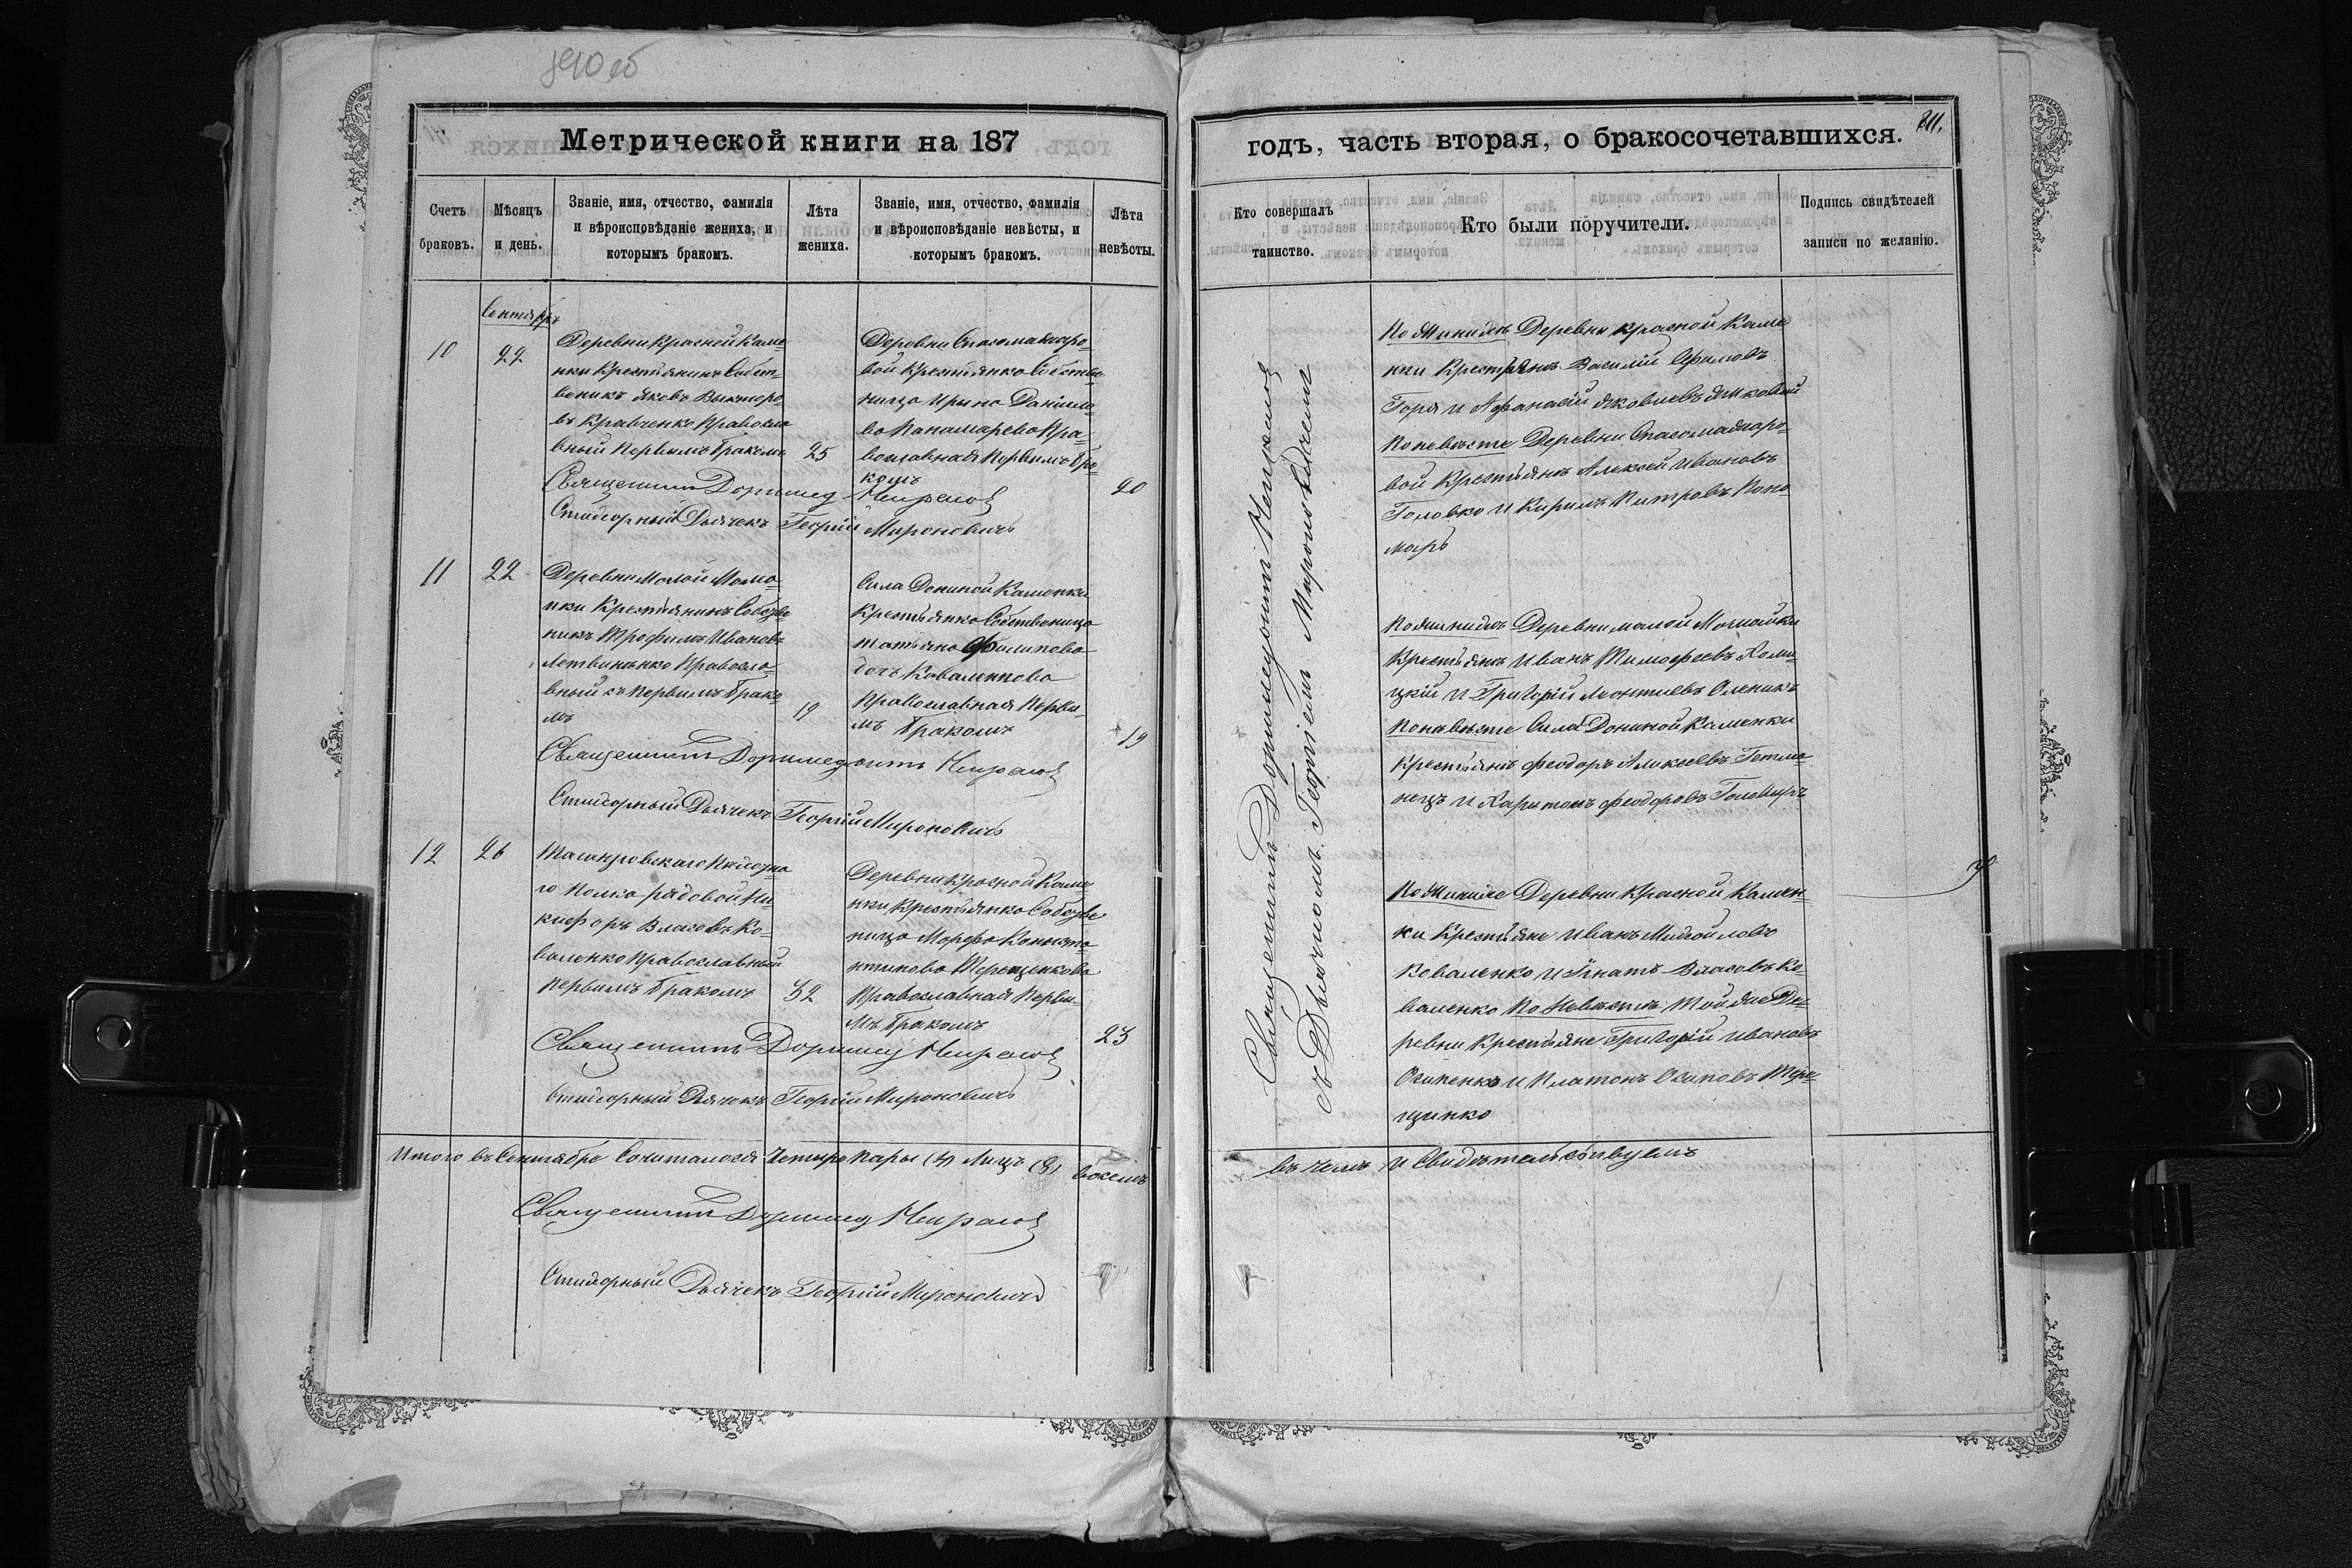 Метрической книги на 187
Счетъ браковъ.
Мѣсяцъ и день.
Званіе, имя, отчество, фамилія и вѣроисповѣданіе жениха, и которымъ бракомъ.
Лѣта жениха.
Званіе, имя, отчество, фамилія и вѣроисповѣданіе невѣсты, и которымъ бракомъ.
Лѣта невѣсты.
Сентябрь
10
22
Деревни Красной Каме-
нки Крестьянинъ Собст-
веникъ Яковъ Викторо-
въ Кравченко Правосла
вный Первымъ бракомъ
25
Деревни
вой Крестьянка Собстве
ница Ирина Данило-
ва Панамарева Пра-
вославная Первымъ бра-
комъ
20
Священникъ
Стихарный Дьячекъ Георгій Мироновичъ
11
22
Деревни Малой
нки Крестьянинъ Собстве
никъ Трофимъ Ивановъ
Литвиненко Правосла-
вный Первымъ брако
мъ
19
Села Каменки
Крестьянка Собственица
Татьяна Филипова
дочь Коваленкова
Православная Первы-
мъ бракомъ
19
Священникъ
Стихарный Дьячекъ Георгій Мироновичъ
12
26
Таганровскаго Пѣхотна
го Полка рядовой Ни-
кифоръ Власовъ Ко-
валенко Православный
Первымъ бракомъ
32
Деревни Красной Каме
нки Крестьянка Собстве
ница Марфа Конста-
нтинова Терещенкова
Православная Первы-
мъ бракомъ
23
Священникъ
Стихарный Дьячекъ Георгій Мироновичъ
Итого въ Сентябрѣ Сочиталося Четыре пары (4) Лицъ (8) восемь
Священникъ
Стихарный Дьячекъ Георгій Мироновичъ
годъ, часть вторая, о бракосочетавшихся.
811.
Кто совершалъ таинство.
Кто были поручители.
Подпись свидѣтелей записи по желанію.
Священникъ
съ Дьячкомъ Георгіемъ Мироновичемъ
По Женихѣ Деревни Красной Каме
нки Крестьяне Василій Ефимовъ
Горя и Афанасій Яковлевъ
По невѣсте Деревни
вой Крестьяне Алексѣй Ивановъ
Головко и Кирилъ Петровъ Поно
марь
По женихѣ Деревни малой
Крестьяне Иванъ Тимофеевъ
и Григорій Леонтиевъ Олейникъ
По невѣсте Села Каменки
Крестьяне Феодоръ Алексеевъ Гетма-
нецъ и Харитонъ Феодоровъ
По Женихе Деревни Красной Камен-
ки Крестьяне Иванъ Михайловъ
Коваленко и Игнатъ Власовъ Ко-
валенко По Невѣстѣ Той же Де-
ревни Крестьяне Григорій Ивановъ
Осипенко и Платонъ Осиповъ Тере-
щенко
въ чемъ и Свидѣтельствуемъ